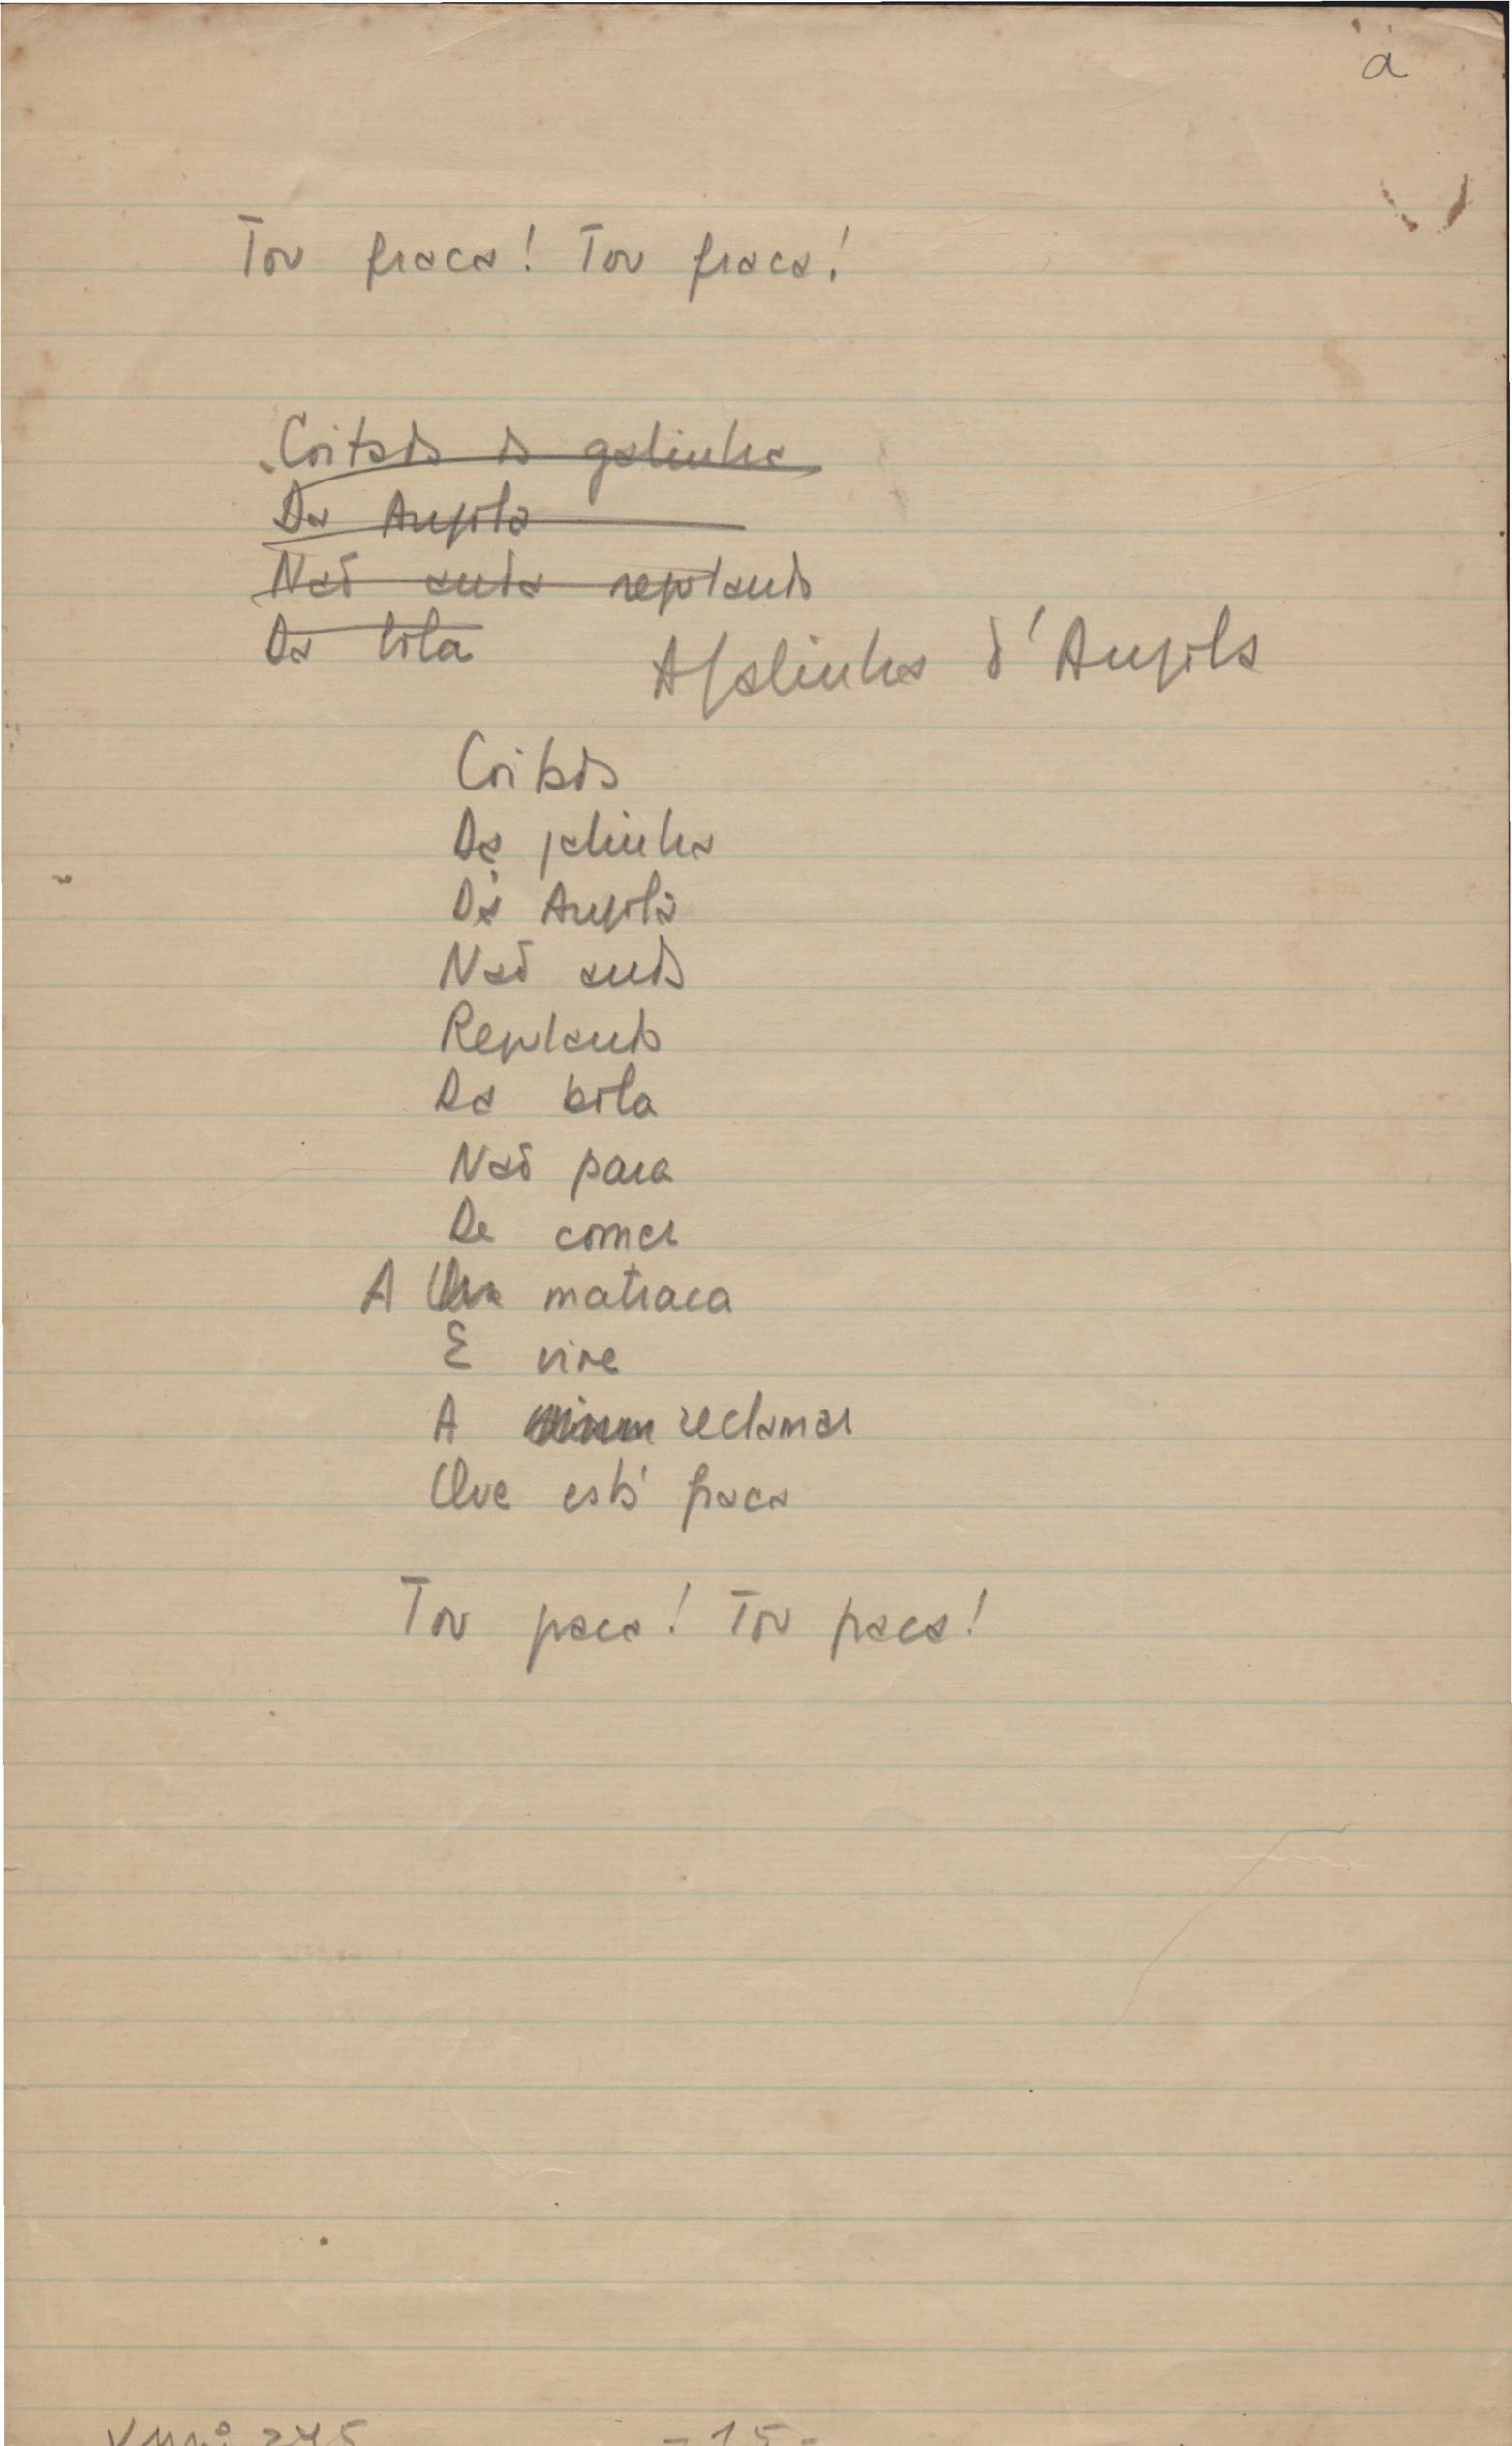 a
Tou fraca! Tou fraca!
Coitada da galinha
Da Angola
Não anda regulando
Da bola
A galinha d'Angola
Coitada
Da galinha
Da Angola
Não anda
Regulando
Da bola
Não para
De comer
A matraca
E vive
A reclamar
Que está fraca
Tou fraca! Tou fraca!
245
-15-